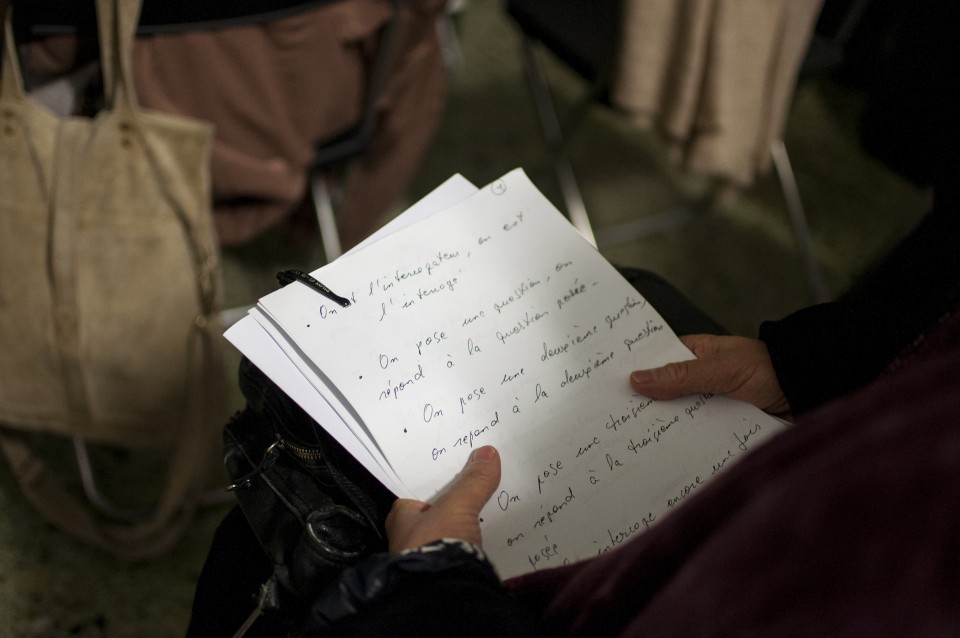 4
• On est l'interrogateur, on est
l'interrogé
• On pose une question, on
répond à la question posée.
• On pose une deuxième question,
on répond à la deuxième question
• On pose une troisième
on répond à la troisième question
posée
interroge encore une fois